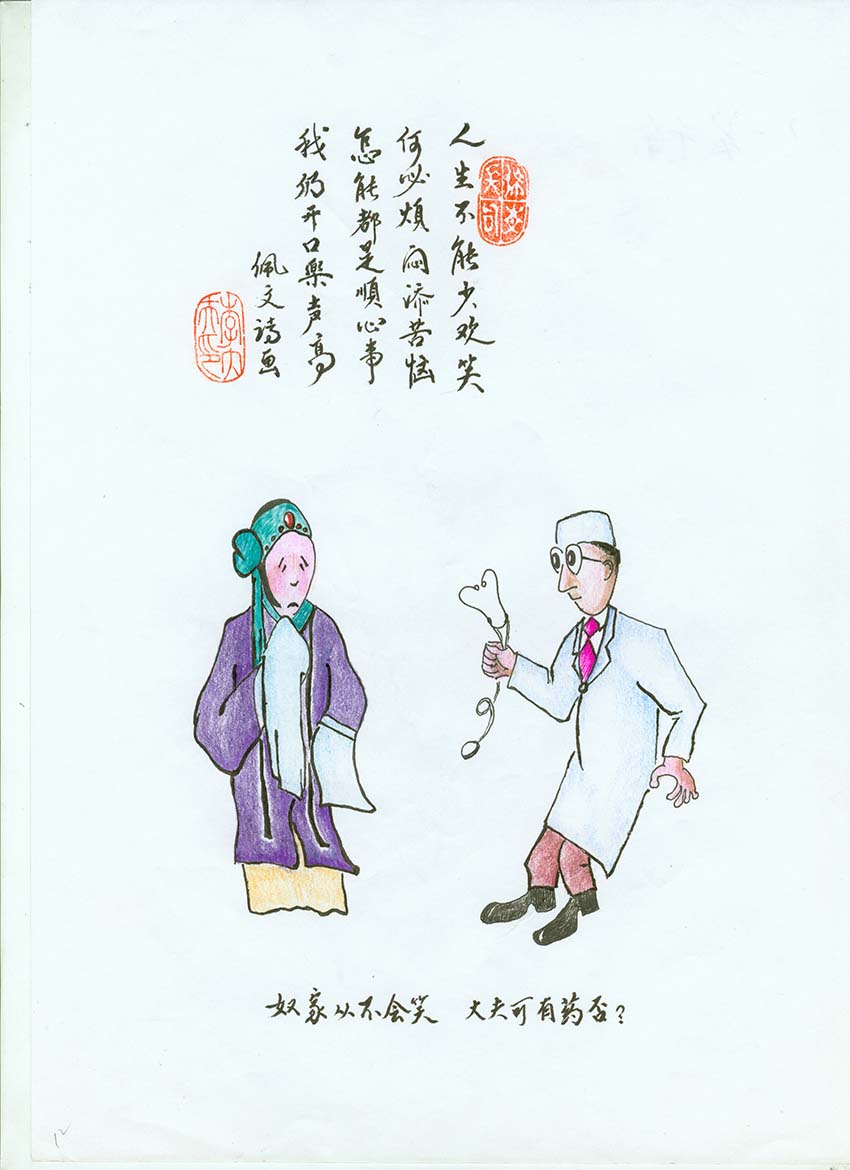 人生不能少欢笑
何必烦闷添苦恼
怎能都是順心事
我仍开口樂声高
佩文诗画
奴家从不会笑 大夫可有药否？
12